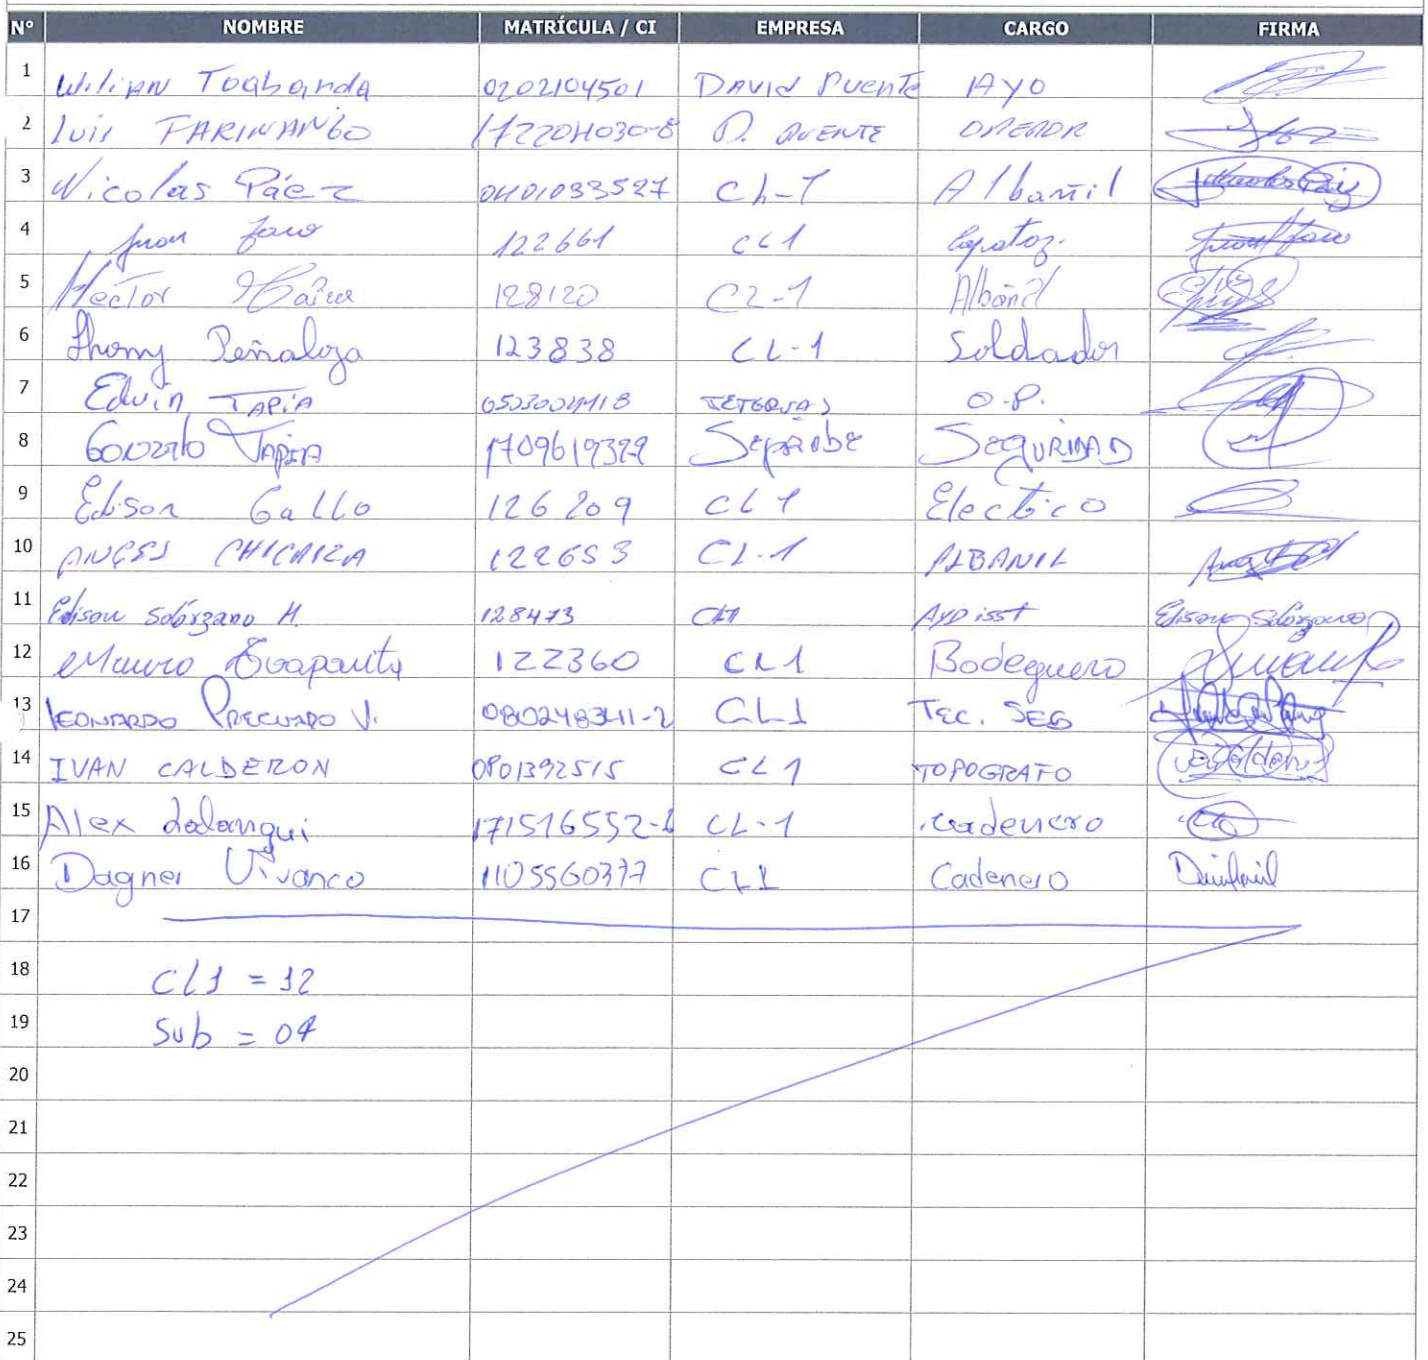 N° NOMBRE MATRÍCULA / CI EMPRESA CARGO FIRMA
1 Wilian Toabanda 0202104501 DAVID PUENTE AYO
2 Luis FARINANGO D. PUENTE
3 Nicolas Páez 0401033527 CL-1 Albañil
4 Juan 122661 CL1
5 Hector 128120 CL-1 Albañil
6 Jhomy Peñaloza 123838 CL-1 Soldador
7 Edwin TAPIA O.P.
8 Gonzalo TAPIA 1709619329 SEGURIDAD
9 Edison Gallo 126209 CL1 Electrico
10 CHICAIZA 122653 CL-1 ALBANIL
11 Edison Solórzano M. 128473 CL1 Edison Solórzano
12 Mauro 122360 CL1 Bodeguero
13 LEONARDO PRECIADO V. 080248341-2 CL1 TEC. SEG
14 IVAN CALDERON 0801392515 CL1 TOPOGRAFO
15 Alex 171516552-6 CL-1 cadenero
16 Dagner Vivanco 1105560377 CL1 Cadenero
17
18 CL1 = 12
19 Sub = 04
20
21
22
23
24
25